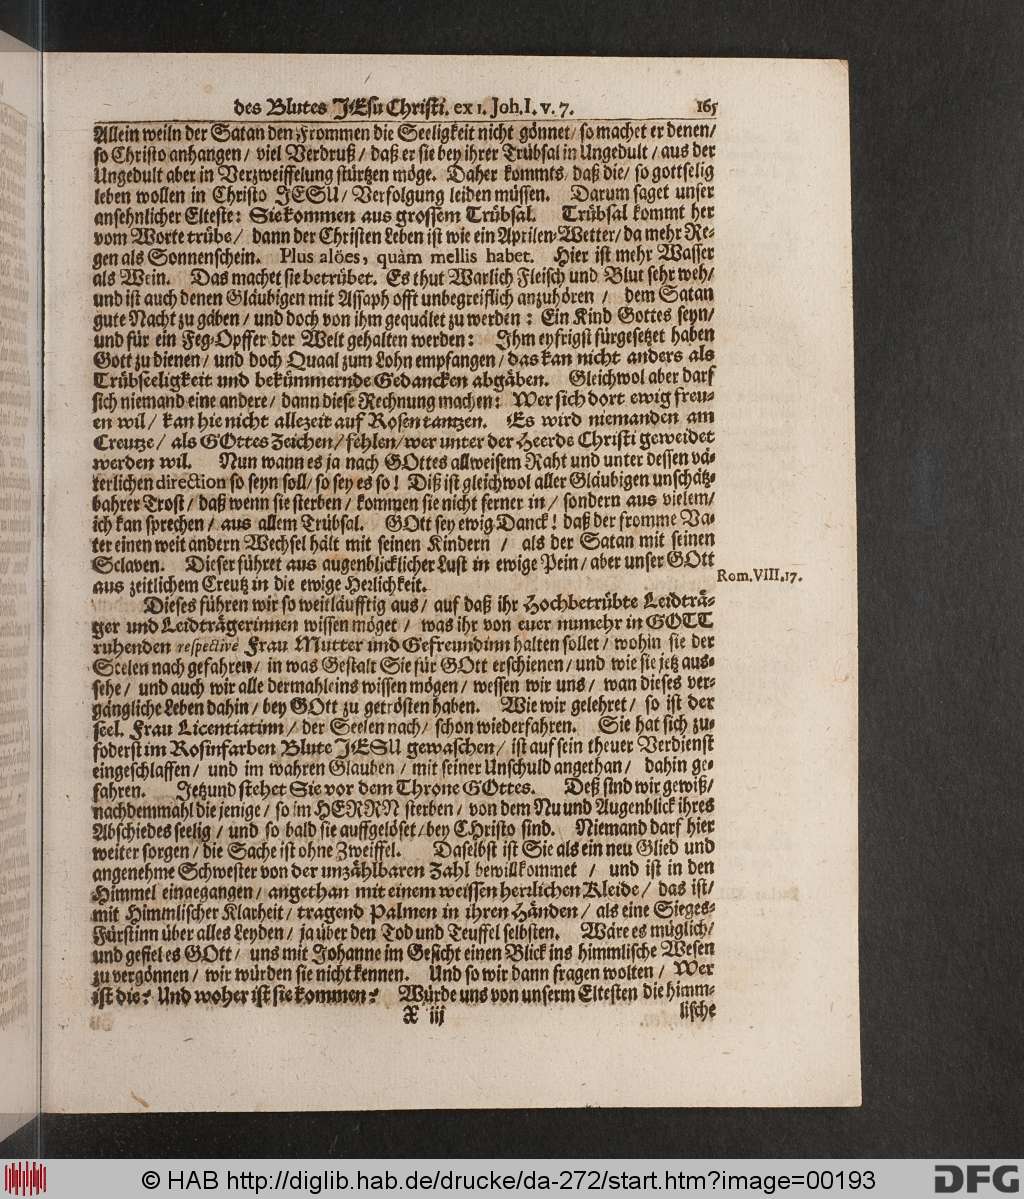 des Blutes JEsu Christi. ex 1. Joh. I. v. 7. 165
Allein weiln der Satan den Frommen die Seeligkeit nicht gönnet/ so machet er denen/
so Christo anhangen/ viel Verdruß/ daß er sie bey ihrer Trübsal in Ungedult/ aus der
Ungedult aber in Verzweiffelung stürtzen möge. Daher kommts/ daß die/ so gottselig
leben wollen in Christo JESU/ Verfolgung leiden müssen. Darum saget unser
ansehnlicher Elteste: Sie kommen aus grossem Trübsal. Trübsal kommt her
vom Worte trübe/ dann der Christen Leben ist wie ein Aprilen-Wetter/ da mehr Re-
gen als Sonnenschein. Plus aloës, quàm mellis habet. Hier ist mehr Wasser
als Wein. Das machet sie betrübet. Es thut Warlich Fleisch und Blut sehr weh/
und ist auch denen Gläubigen mit Assaph offt unbegreiflich anzuhören/ dem Satan
gute Nacht zu gäben/ und doch von ihm gequälet zu werden: Ein Kind Gottes seyn/
und für ein Feg-Opffer der Welt gehalten werden: Ihm eyfrigst fürgesetzet haben
Gott zu dienen/ und doch Quaal zum Lohn empfangen/ das kan nicht anders als
Trübseeligkeit und bekümmernde Gedancken abgäben. Gleichwol aber darf
sich niemand eine andere/ dann diese Rechnung machen: Wer sich dort ewig freu-
en wil/ kan hie nicht allezeit auf Rosen tantzen. Es wird niemanden am
Creutze/ als GOttes Zeichen/ fehlen/ wer unter der Heerde Christi geweidet
werden wil. Nun wann es ja nach GOttes allweisem Raht und unter dessen vä-
terlichen direction so seyn soll/ so sey es so! Diß ist gleichwol aller Gläubigen unschätz-
bahrer Trost/ daß wenn sie sterben/ kommen sie nicht ferner in/ sondern aus vielem/
ich kan sprechen/ aus allem Trübsal. GOtt sey ewig Danck! daß der fromme Va-
ter einen weit andern Wechsel hält mit seinen Kindern/ als der Satan mit seinen
Sclaven. Dieser führet aus augenblicklicher Lust in ewige Pein/ aber unser GOtt
aus zeitlichem Creutz in die ewige Herlichkeit.
Rom. VIII. 17.
Dieses führen wir so weitläufftig aus/ auf daß ihr Hochbetrübte Leidträ-
ger und Leidträgerinnen wissen möget/ was ihr von euer numehr in GOTT
ruhenden respectivè Frau Mutter und Gefreundinn halten sollet/ wohin sie der
Seelen nach gefahren/ in was Gestalt Sie für GOtt erschienen/ und wie sie jetz aus-
sehe/ und auch wir alle dermahleins wissen mögen/ wessen wir uns/ wan dieses ver-
gängliche Leben dahin/ bey GOtt zu getrösten haben. Wie wir gelehret/ so ist der
seel. Frau Licentiatinn/ der Seelen nach/ schon wiederfahren. Sie hat sich zu-
foderst im Rosinfarben Blute JESU gewaschen/ ist auf sein theuer Verdienst
eingeschlaffen/ und im wahren Glauben/ mit seiner Unschuld angethan/ dahin ge-
fahren. Jetzund stehet Sie vor dem Throne GOttes. Deß sind wir gewiß/
nachdemmahl die jenige/ so im HERRN sterben/ von dem Nu und Augenblick ihres
Abschiedes seelig/ und so bald sie auffgelöset/ bey CHristo sind. Niemand darf hier
weiter sorgen/ die Sache ist ohne Zweiffel. Daselbst ist Sie als ein neu Glied und
angenehme Schwester von der unzählbaren Zahl bewillkommet/ und ist in den
Himmel eingegangen/ angethan mit einem weissen herrlichen Kleide/ das ist/
mit Himmlischer Klarheit/ tragend Palmen in ihren Händen/ als eine Sieges-
Fürstinn über alles Leyden/ ja über den Tod und Teuffel selbsten. Wäre es müglich/
und gefiel es GOtt/ uns mit Johanne im Gesicht einen Blick ins himmlische Wesen
zu vergönnen/ wir würden sie nicht kennen. Und so wir dann fragen wolten/ Wer
ist die? Und woher ist sie kommen? Würde uns von unserm Eltesten die himm-
X iij lische
© HAB http://diglib.hab.de/drucke/da-272/start.htm?image=00193
DFG